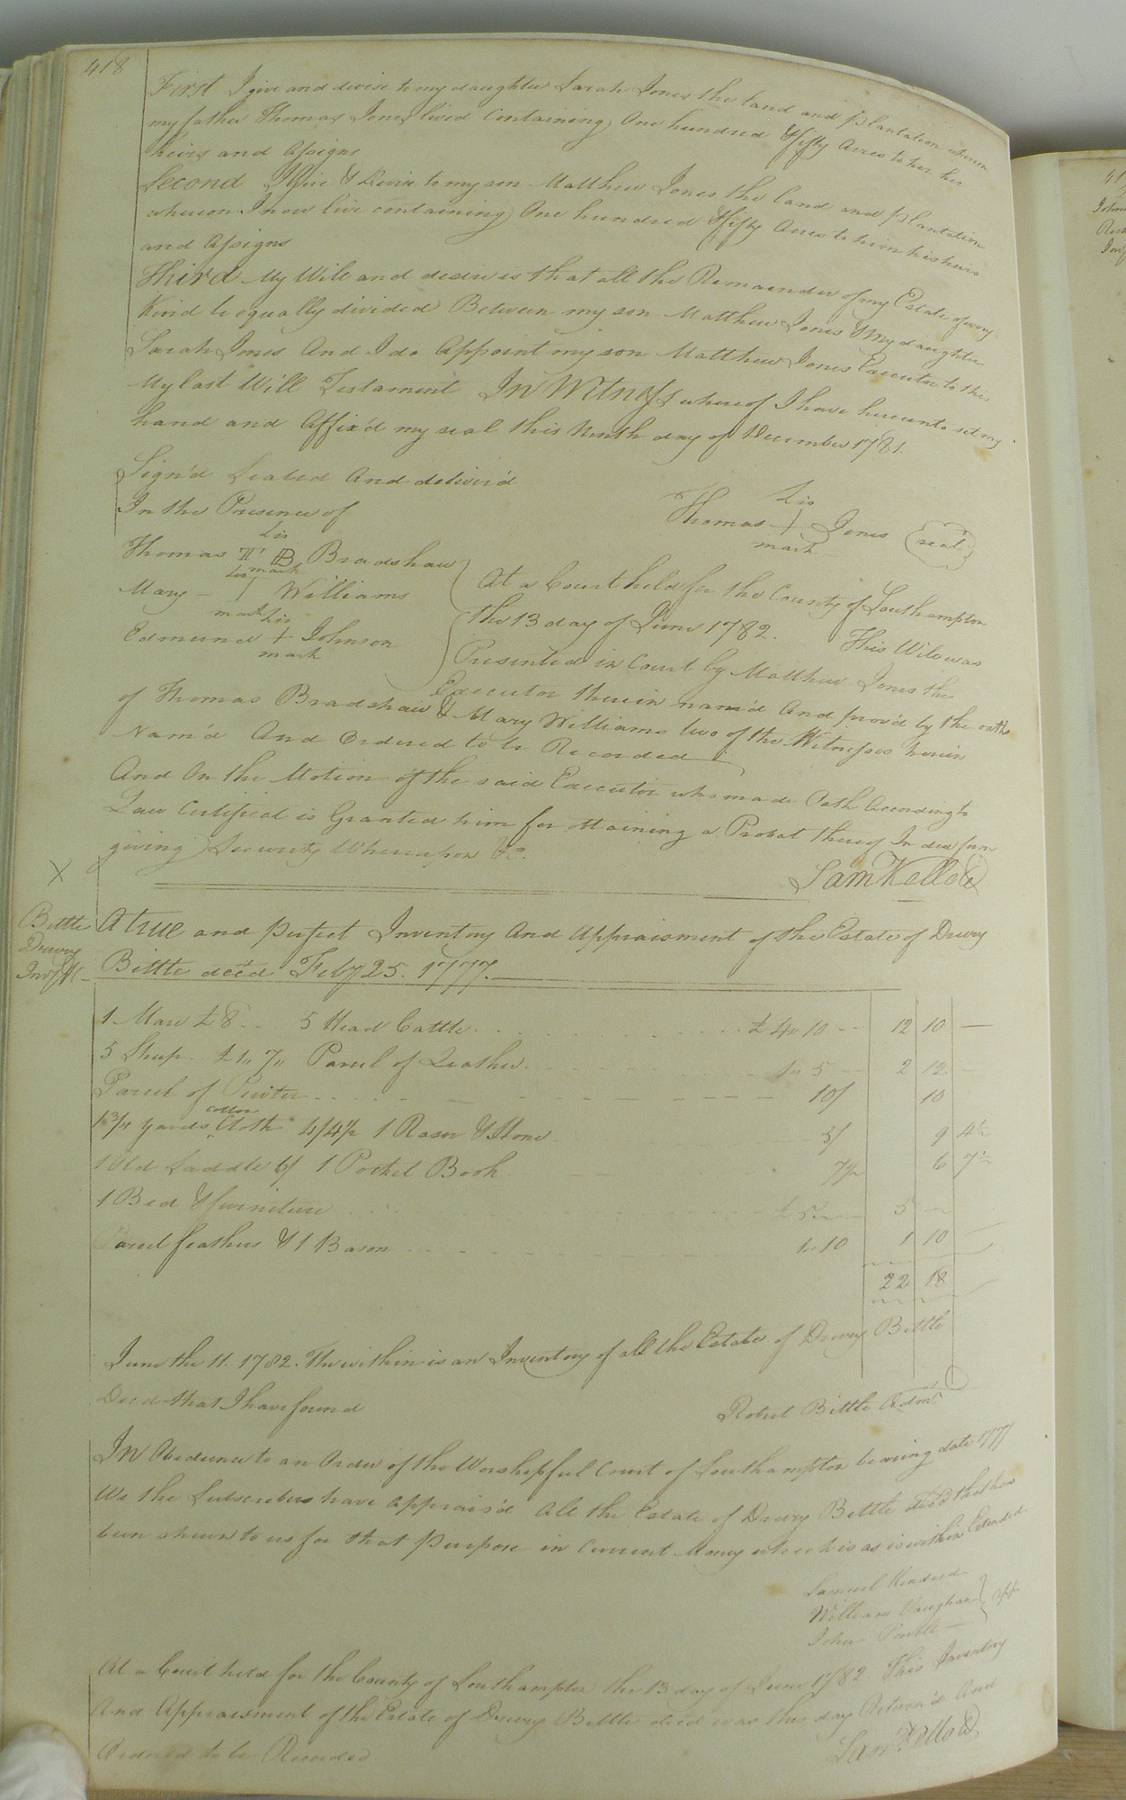 418
First I give and devise to my daughter Sarah Jones the land and plantation wheron
my father Thomas Jones lived Containing One hundred & fifty Acres to her her
heirs and Assigns
Second I Give & Devise to my son Matthew Jones the land and plantation
whereon I now live containing One hundred & fifty Acres to him his heirs
and Assigns
Third My Will and desire is that all the Remainder of my Estate of every
Kind be equally divided Between my son Matthew Jones & my daughter
Sarah Jones And I do Appoint my son Matthew Jones Executor to this
My last Will Testament In Witness whereof I have hereunto set my
hand and Affix'd my seal this Ninth day of December 1781.
Sign'd Sealed And deliver'd
In the Presence of
Thomas his + mark Jones (seal)
Thomas his TB mark Bradshaw
Mary her mark Williams
Edmund his + mark Johnson
At a Court held for the County of Southampton
the 13 day of June 1782. This Will was
Presented in Court by Matthew Jones the
Executor therein nam'd And prov'd by the oaths
of Thomas Bradshaw & Mary Williams two of the Witnesses herein
Nam'd And Ordered to be Recorded
And On the Motion of the said Executor who made Oath According to
Law Certificat is Granted him for Obtaining a Probat thereof In due form
giving Security Whereupon &c.
Sam Kello Ck
X
Bittle
Drewry
Inv &c
A true and perfect Inventory And Appraisment of the Estate of Drewry
Bittle dec'd Feby 25. 1777.
1 Mare £8 .. 5 Head Cattle £4 10 12 10
5 Sheep £1 " 7 " Parcel of Leather 1 " 5 2 12
Parcel of Pewter 10/ 10
1 3/4 yards cotton Cloth 4/4½ 1 Rasor & Hone 5/ 9 4½
1 Old Saddle 6/ 1 Pocket Book 7½ 6 7½
1 Bed & furniture £5 5
Parcel feathers & 1 Bason 1 " 10 1 10
22 18
June the 11. 1782. The within is an Inventory of all the Estate of Drewry Bittle
Decd that I have found
Robert Bittle Admr
In Obedience to an Order of the Worshipful Court of Southampton bearing date 1777
We the Subscribers have Apprais'd All the Estate of Drewry Bittle dec'd that has
been shewn to us for that purpose in Current Money which is as is within Extended
Samuel Kindred
William Vaughan
John
At a Court held for the County of Southampton the 13 day of June 1782. This Inventory
And Appraisment of the Estate of Drewry Bittle decd was this day Return'd And
Ordered to be Recorded
Sam Kello Ck